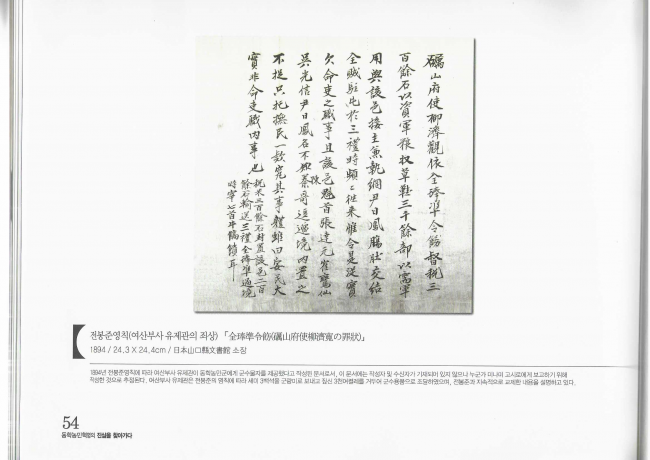 礪山府使柳濟觀依全琫準令飭督稅三
百餘石以資軍粮收草鞋三千餘部以寓軍
用與該邑接主兼執綱尹日鳳膓肚交結
全賊駐屯於三禮時頻〻往来雖令是從實
欠命吏之職事且該邑魁首張達元崔鸞仙
吳光信尹日鳳名不知陳哥逗遛境內置之
不捉只托撫民一款究其事軆雖曰安民大
實非命吏職內事也
稅米三百餘石封置該邑二百
餘石輸送三禮全琫準過境
時宰七首牛犒饋耳
전봉준영칙(여산부사 유제관의 죄상) 「全琫準令飭(礪山府使柳濟寬の罪狀)」
1894 / 24.3 X 24.4cm / 日本山口縣文書館 소장
1894년 전봉준영칙에 따라 여산부사 유제관이 동학농민군에게 군수물자를 제공했다고 작성한 문서로서, 이 문서에는 작성자 및 수신자가 기재되어 있지 않으나 누군가 미나미 고시로에게 보고하기 위해
작성한 것으로 추정된다. 여산부사 유제관은 전봉준의 영칙에 따라 세미 3백석을 군량미로 보내고 짚신 3천여켤레를 거두어 군수용품으로 조달하였으며, 전봉준과 지속적으로 교제한 내용을 설명하고 있다.
54
동학농민혁명의 진실을 찾아가다